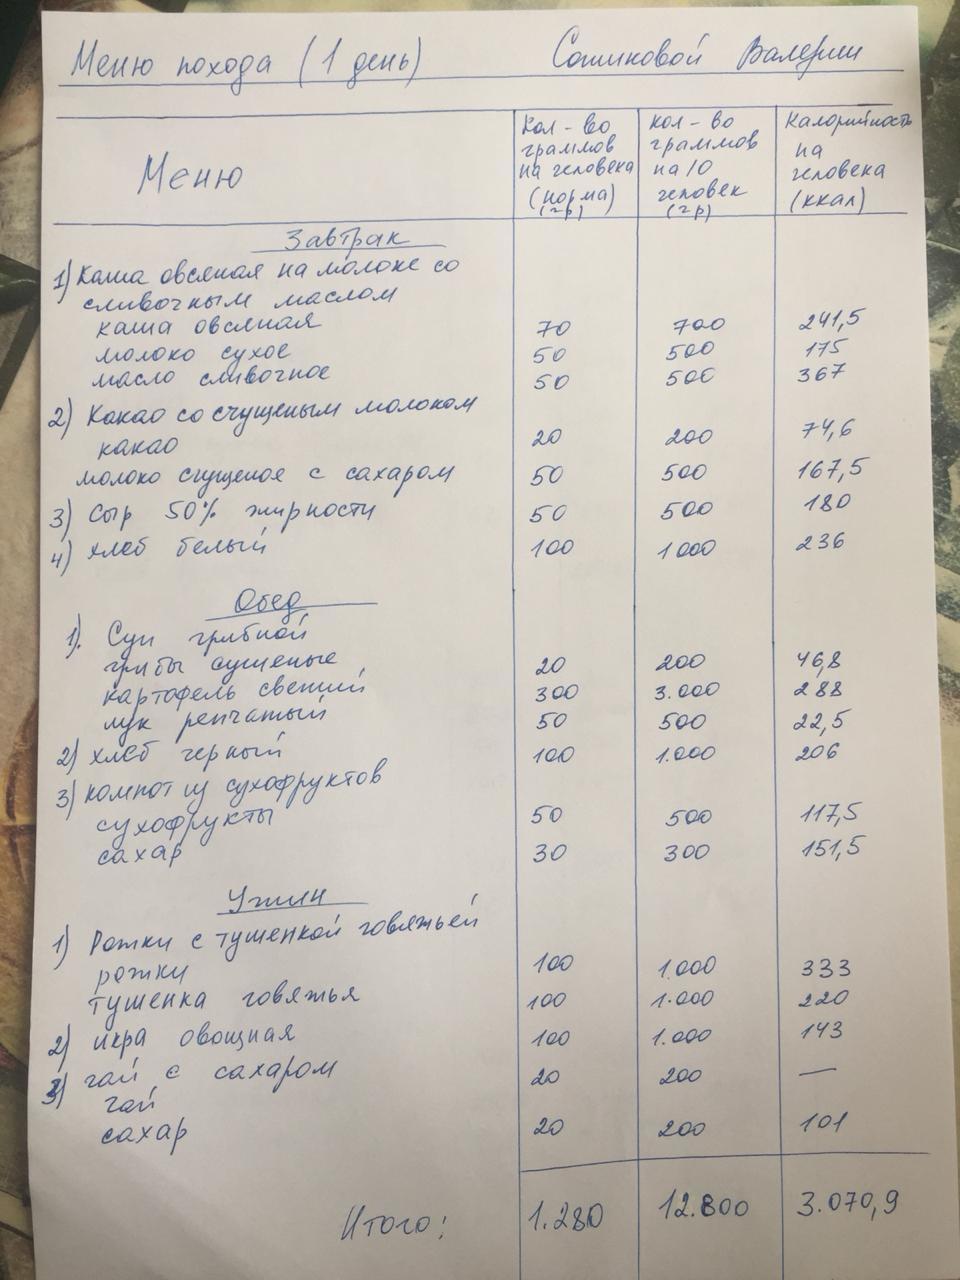 Меню похода (1 день) Сошиковой Валерии
Меню
кол-во граммов на человека (норма) (гр)
кол-во граммов на 10 человек (гр)
Калорийность на человека (ккал)
Завтрак
1) Каша овсяная на молоке со
сливочным маслом
каша овсяная 70 700 241,5
молоко сухое 50 500 175
масло сливочное 50 500 367
2) Какао со сгущеным молоком
какао 20 200 74,6
молоко сгущеное с сахаром 50 500 167,5
3) Сыр 50% жирности 50 500 180
4) хлеб белый 100 1000 236
Обед
1). Суп грибной
грибы сушеные 20 200 46,8
картофель свежий 300 3.000 288
лук репчатый 50 500 22,5
2) хлеб черный 100 1.000 206
3) компот из сухофруктов
сухофрукты 50 500 117,5
сахар 30 300 151,5
Ужин
1) Рожки с тушенкой говяжьей
рожки 100 1.000 333
тушенка говяжья 100 1.000 220
2) икра овощная 100 1.000 143
3) чай с сахаром
чай 20 200 —
сахар 20 200 101
Итого: 1.280 12.800 3.070,9